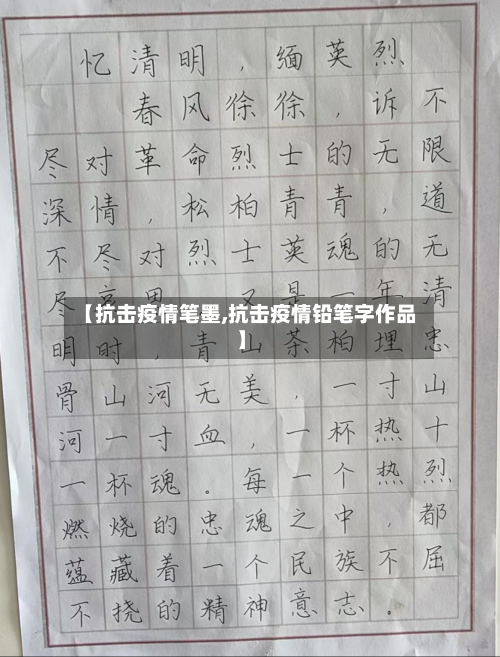 忆清明，缅英烈
春风徐徐，诉不
尽对革命烈士的无限
深情，松柏青青，道
不尽对烈士英魂的无
尽哀思。又是一年清
【抗击疫情笔墨,抗击疫情铅笔字作品
】
明时，青山茶柏埋忠
骨山河无美，一寸山
河一寸血，一杯热十
一杯魂。每一个热烈
燃烧的忠魂之中，都
蕴藏着一个民族不屈
不挠的精神意志。